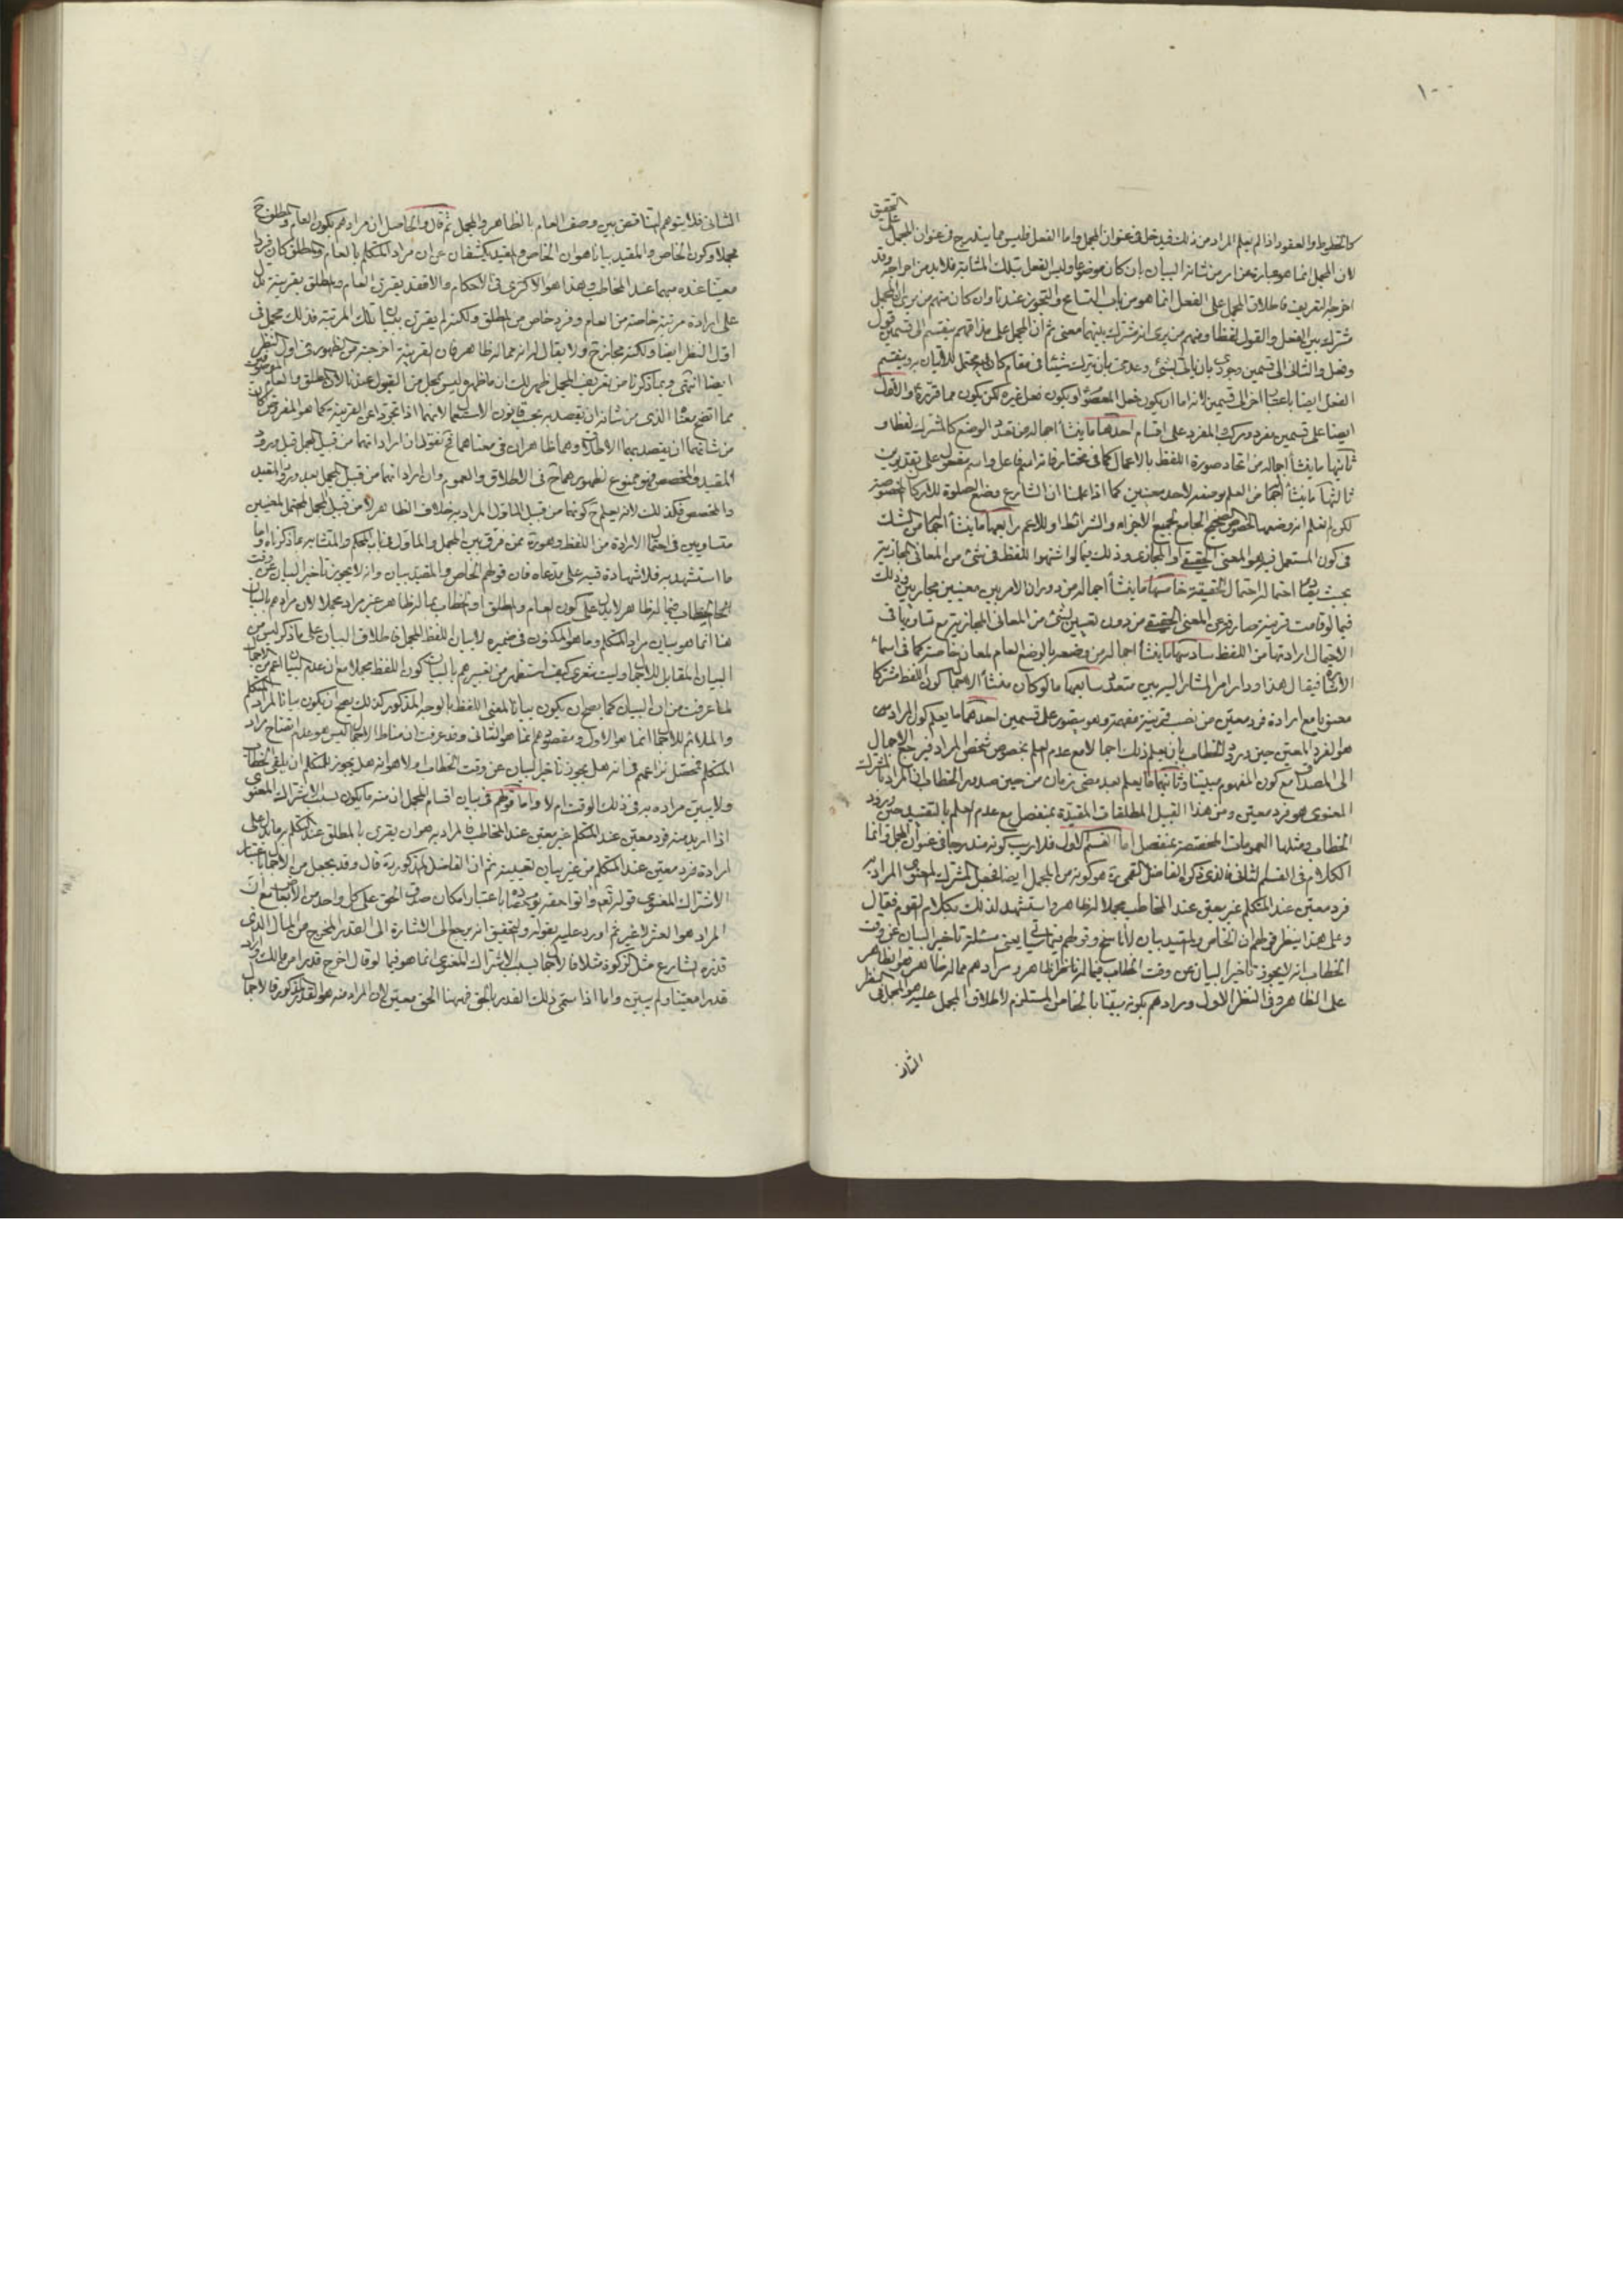 ١٠٠
التحقيق
كالخطوط والعقود اذا لم يعلم المراد من ذلك فيدخل فى عنوان المجمل واما الفعل فليس مما يندرج فى عنوان المجمل
لان المجمل انما هو عبارة عن امر من شانه البيان بان كان موضوعا وليس الفعل بتلك المثابة فلابد من اخراجه وقد
اخرجه التعريف فاطلاق المجمل على الفعل انما هو من باب التسامح والتجوز عندنا وان كان منهم من يرى المجمل
مشترك بين الفعل والقول لفظا ومنهم من يرى انه مشترك بينهما معنى ثم ان المجمل على مذاقهم ينقسم الى قسمين قول
وفعل والثانى الى قسمين وجودى بان ياتى بشئ وعدمى بان يترك شيئا فى مقام كان يحتمل للاتيان به وينقسم
الفعل ايضا باعتبار اخر الى قسمين لانه اما ان يكون فعل المعصوم او يكون فعل غيره لكن يكون مما قرره والاول
ايضا على قسمين مفرد ومركب والمفرد على اقسام احدها ما ينشأ اجماله من تعدد الوضع كالمشترك لفظا و
ثانيها ما ينشأ اجماله من اتحاد صورة اللفظ بالاعلال كما فى مختار فانه اسم فاعل واسم مفعول على تقديرين
ثالثها ما ينشأ اجماله من العلم بوضعه لاحد معنيين كما اذا علمنا ان الشارع وضع الصلوة للاركان المخصوصة
لكن لم نعلم انه وضعها لخصوص الصحيح الجامع لجميع الاجزاء والشرائط او للاعم رابعها ما ينشأ اجماله من الشك
فى كون المستعمل فيه هو المعنى الحقيقى او المجازى وذلك فيما لو اشتهر اللفظ فى شئ من المعانى المجازية
بحيث يقابل احتماله احتمال الحقيقة خامسها ما ينشأ اجماله من دوران الامر بين معنيين مجازيين وذلك
فيما لو قامت قرينة صارفة عن المعنى الحقيقى من دون تعيين لشئ من المعانى المجازية مع تساويها فى
الاحتمال ارادتها من اللفظ سادسها ما ينشأ اجماله من وضعه بالوضع العام لمعان خاصة كما فى اسماء
الاشارة فيقال هذا ودار امر المشار اليه بين متعدد سابعها ما لو كان منشأ الاجمال كون اللفظ مشتركا
معنويا مع ارادة فرد معين من نصب قرينة مفهمة وهو يتصور على قسمين احدهما ما يعلم كون المراد منه
هو الفرد المعين حين ورود الخطاب بان يعلم ذلك اجمالا مع عدم العلم بخصوص شخص المراد فيرجع الاجمال
الى المصداق مع كون المفهوم مبينا وثانيهما ما يعلم بعد مضى زمان من حين صدور الخطاب ان المراد بالمشترك
المعنوى هو فرد معين ومن هذا القبيل المطلقات المقيدة بمنفصل مع عدم العلم بالتقييد حين ورود
الخطاب ومثلها العمومات المخصصة بمنفصل اما القسم الاول فلا ريب كونه مندرجا فى عنوان المجمل وانما
الكلام فى القسم الثانى فالذى ذكره الفاضل القمى ره هو كونه من المجمل ايضا فجعل المشترك المعنوى المراد به
فرد معين عند المتكلم غير معين عند المخاطب مجملا لا ظاهرا واستشهد لذلك بكلام القوم فقال
وعلى هذا ينطر قولهم ان الخاص والمقيد بيان لا ناسخ وقولهم فيما سياتى يعنى مسئلة تأخير البيان عن وقت
الخطاب انه لا يجوز تأخير البيان عن وقت الخطاب فيما له ظاهر ومرادهم مما له ظاهر هو الظاهر
على الظاهر فى النظر الاول ومرادهم بكونه مبينا بالخاص المستلزم لاطلاق المجمل عليه هو المجمل فى النظر
الثانى
الثانى فلا يتوهم التناقض بين وصف العام بالظاهر والمجمل ثم قال والحاصل ان مرادهم بكون العام والمطلق ح
مجملا وكون الخاص والمقيد بيانا هو ان الخاص والمقيد يكشفان عن ان مراد المتكلم بالعام والمطلق كان فردا
معينا عنده مبهما عند المخاطب وهذا هو الاكثرى فى الاحكام والا فقد يقترن العام والمطلق بقرينة تدل
على ارادة مرتبة خاصة من العام وفرد خاص من المطلق ولكنه لم يقترن ببيان تلك المرتبة فذلك مجمل فى
اول النظر ايضا ولكنه مجاز ح ولا يقال له انه مما له ظاهر فان القرينة اخرجته من الظهور فى اول النظر
ايضا انتهى وبما ذكرنا من تعريف المجمل ظهر لك ان ما ظهر وليس بمجمل من القول عندنا لان المطلق والعام
من شانهما ان يقصد بهما الاطلاق وهما ظاهران فى معناهما ح فقوله ان ارادتهما من قبيل المجمل قبل ورود
المقيد والمخصص فهو ممنوع لظهورهما ح فى الاطلاق والعموم وان ارادتهما من قبيل المجمل بعد ورود المقيد
والمخصص فكذلك لانه يعلم ح كونهما من قبيل الماول المراد به خلاف الظاهر لا من قبيل المجمل المحتمل لمعنيين
متساويين فى احتمال الارادة من اللفظ وهو ره ممن فرق بين المجمل والماول فى باب المحكم والمتشابه بما ذكرناه واما
ما استشهد به فلا شهادة فيه على مدعاه فان قولهم الخاص والمقيد بيان وانه لا يجوز تأخير البيان عن وقت
هنا انما هو بيان مراد المتكلم وما هو المكنون فى ضميره لا بيان اللفظ المجمل فاطلاق البيان على ما ذكر ليس من
البيان المقابل للاجمال وليت شعرى كيف استظهر من تعبيرهم بالبيان كون اللفظ مجملا مع ان عدم البيان اعم من الاجمال
لما عرفت من ان البيان كما يصح ان يكون بيانا لمعنى اللفظ بالوجه المذكور كذلك يصح ان يكون بيانا لمراد المتكلم
والملائم للاجمال انما هو الاول ومقصودهم انما هو الثانى وقد عرفت ان مناط الاجمال ليس هو عدم اتضاح مراد
المتكلم فتحصل نزاعهم فى انه هل يجوز تأخير البيان عن وقت الخطاب اولا هو انه هل يجوز للمتكلم ان يلقى الخطاب
ولا يبين مراده به فى ذلك الوقت ام لا واما قولهم فى بيان اقسام المجمل ان منه ما يكون بسبب الاشتراك المعنوى
اذا اريد منه فرد معين عند المتكلم غير معين عند المخاطب فالمراد به هو ان يقترن بالمطلق عند التكلم به ما يدل على
ارادة فرد معين عند المتكلم من غير بيان لتعيينه ثم ان الفاضل المذكور ره قال وقد يجعل من الاجمال باعتبار
الاشتراك المعنوى قوله تعالى واتوا حقه يوم حصاده باعتبار امكان صدق الحق على كل واحد من الابعاض مع ان
المراد هو العشر لا غير ثم اورد عليه بقوله والتحقيق انه يرجع الى الاشارة الى القدر المخرج من المال الذى
قدره الشارع مثل الزكوة مثلا فالاجمال بسبب الاشتراك المعنوى انما هو فيما لو قال اخرج قدرا من مالك واراد
قدرا معينا ولم يبين واما اذا سمى ذلك القدر بالحق فهنا الحق معين لان المراد منه هو القدر المذكور فالاجمال